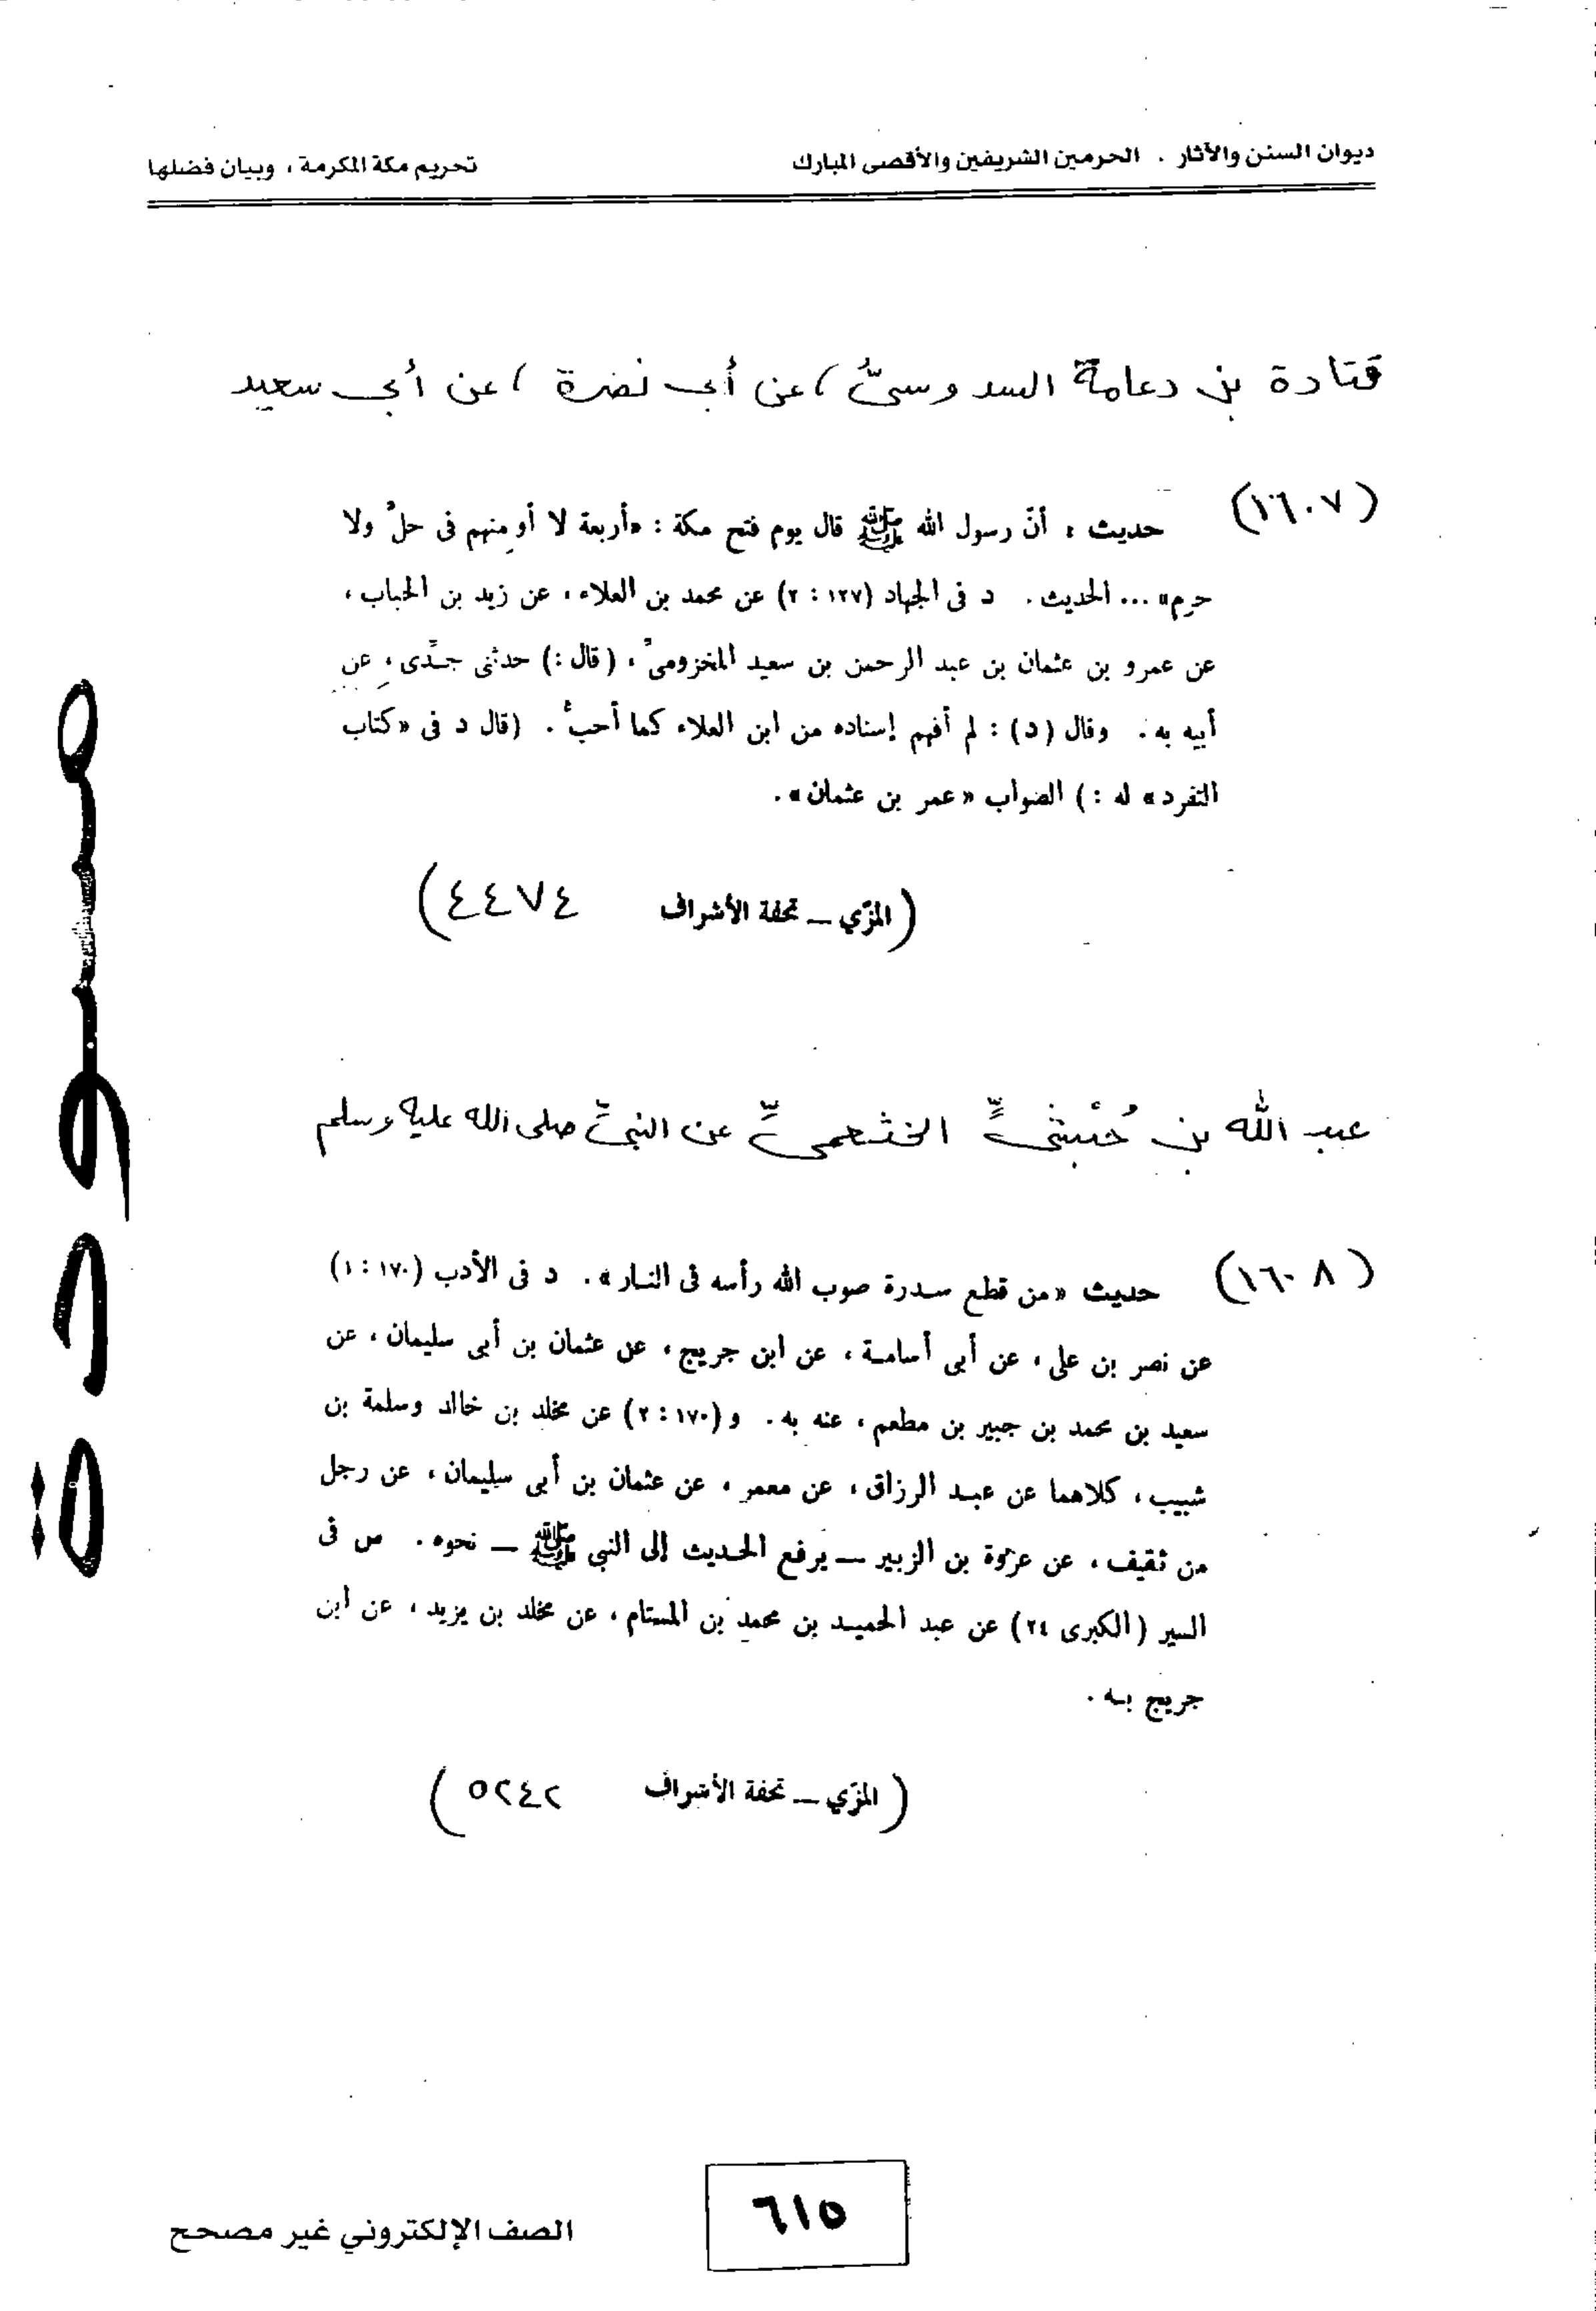 ديوان السنن والآثار . الحرمين الشريفين والأقصى المبارك
تحريم مكة المكرمة ، وبيان فضلها
قتادة بن دعامة السدوسيُّ ، عن أبي نضرة ، عن أبي سعيد
(١٦٠٧) حديث : أنّ رسول الله ﷺ قال يوم فتح مكة : «أربعة لا أومنهم فى حلّ ولا
حرم» ... الحديث . د فى الجهاد (١٢٧ : ٢) عن محمد بن العلاء ، عن زيد بن الحباب ،
عن عمرو بن عثمان بن عبد الرحمن بن سعيد المخزومىّ ، (قال :) حدثنى جدّى ، عن
أبيه به . وقال (د) : لم أفهم إسناده من ابن العلاء كما أحبّ . (قال د فى «كتاب
التفرد» له :) الصواب «عمر بن عثمان» .
(المزّي ــ تحفة الأشراف ٤٤٧٤)
عبد الله بن حُبْشيٍّ الخثعميِّ عن النبيِّ صلى الله عليه وسلم
(١٦٠٨) حديث «من قطع سدرة صوب الله رأسه فى النار» . د فى الأدب (١٧٠ : ١)
عن نصر بن على ، عن أبى أسامة ، عن ابن جريج ، عن عثمان بن أبى سليمان ، عن
سعيد بن محمد بن جبير بن مطعم ، عنه به . و (١٧٠ : ٢) عن مخلد بن خالد وسلمة بن
شبيب ، كلاهما عن عبد الرزاق ، عن معمر ، عن عثمان بن أبى سليمان ، عن رجل
من ثقيف ، عن عروة بن الزبير ــ يرفع الحديث إلى النبى ﷺ ــ نحوه . س فى
السير (الكبرى ٢٤) عن عبد الحميد بن محمد بن المستام ، عن مخلد بن يزيد ، عن ابن
جريج به .
(المزّي ــ تحفة الأشراف ٥٢٤٢)
مسودة
٦١٥
الصف الإلكتروني غير مصحح